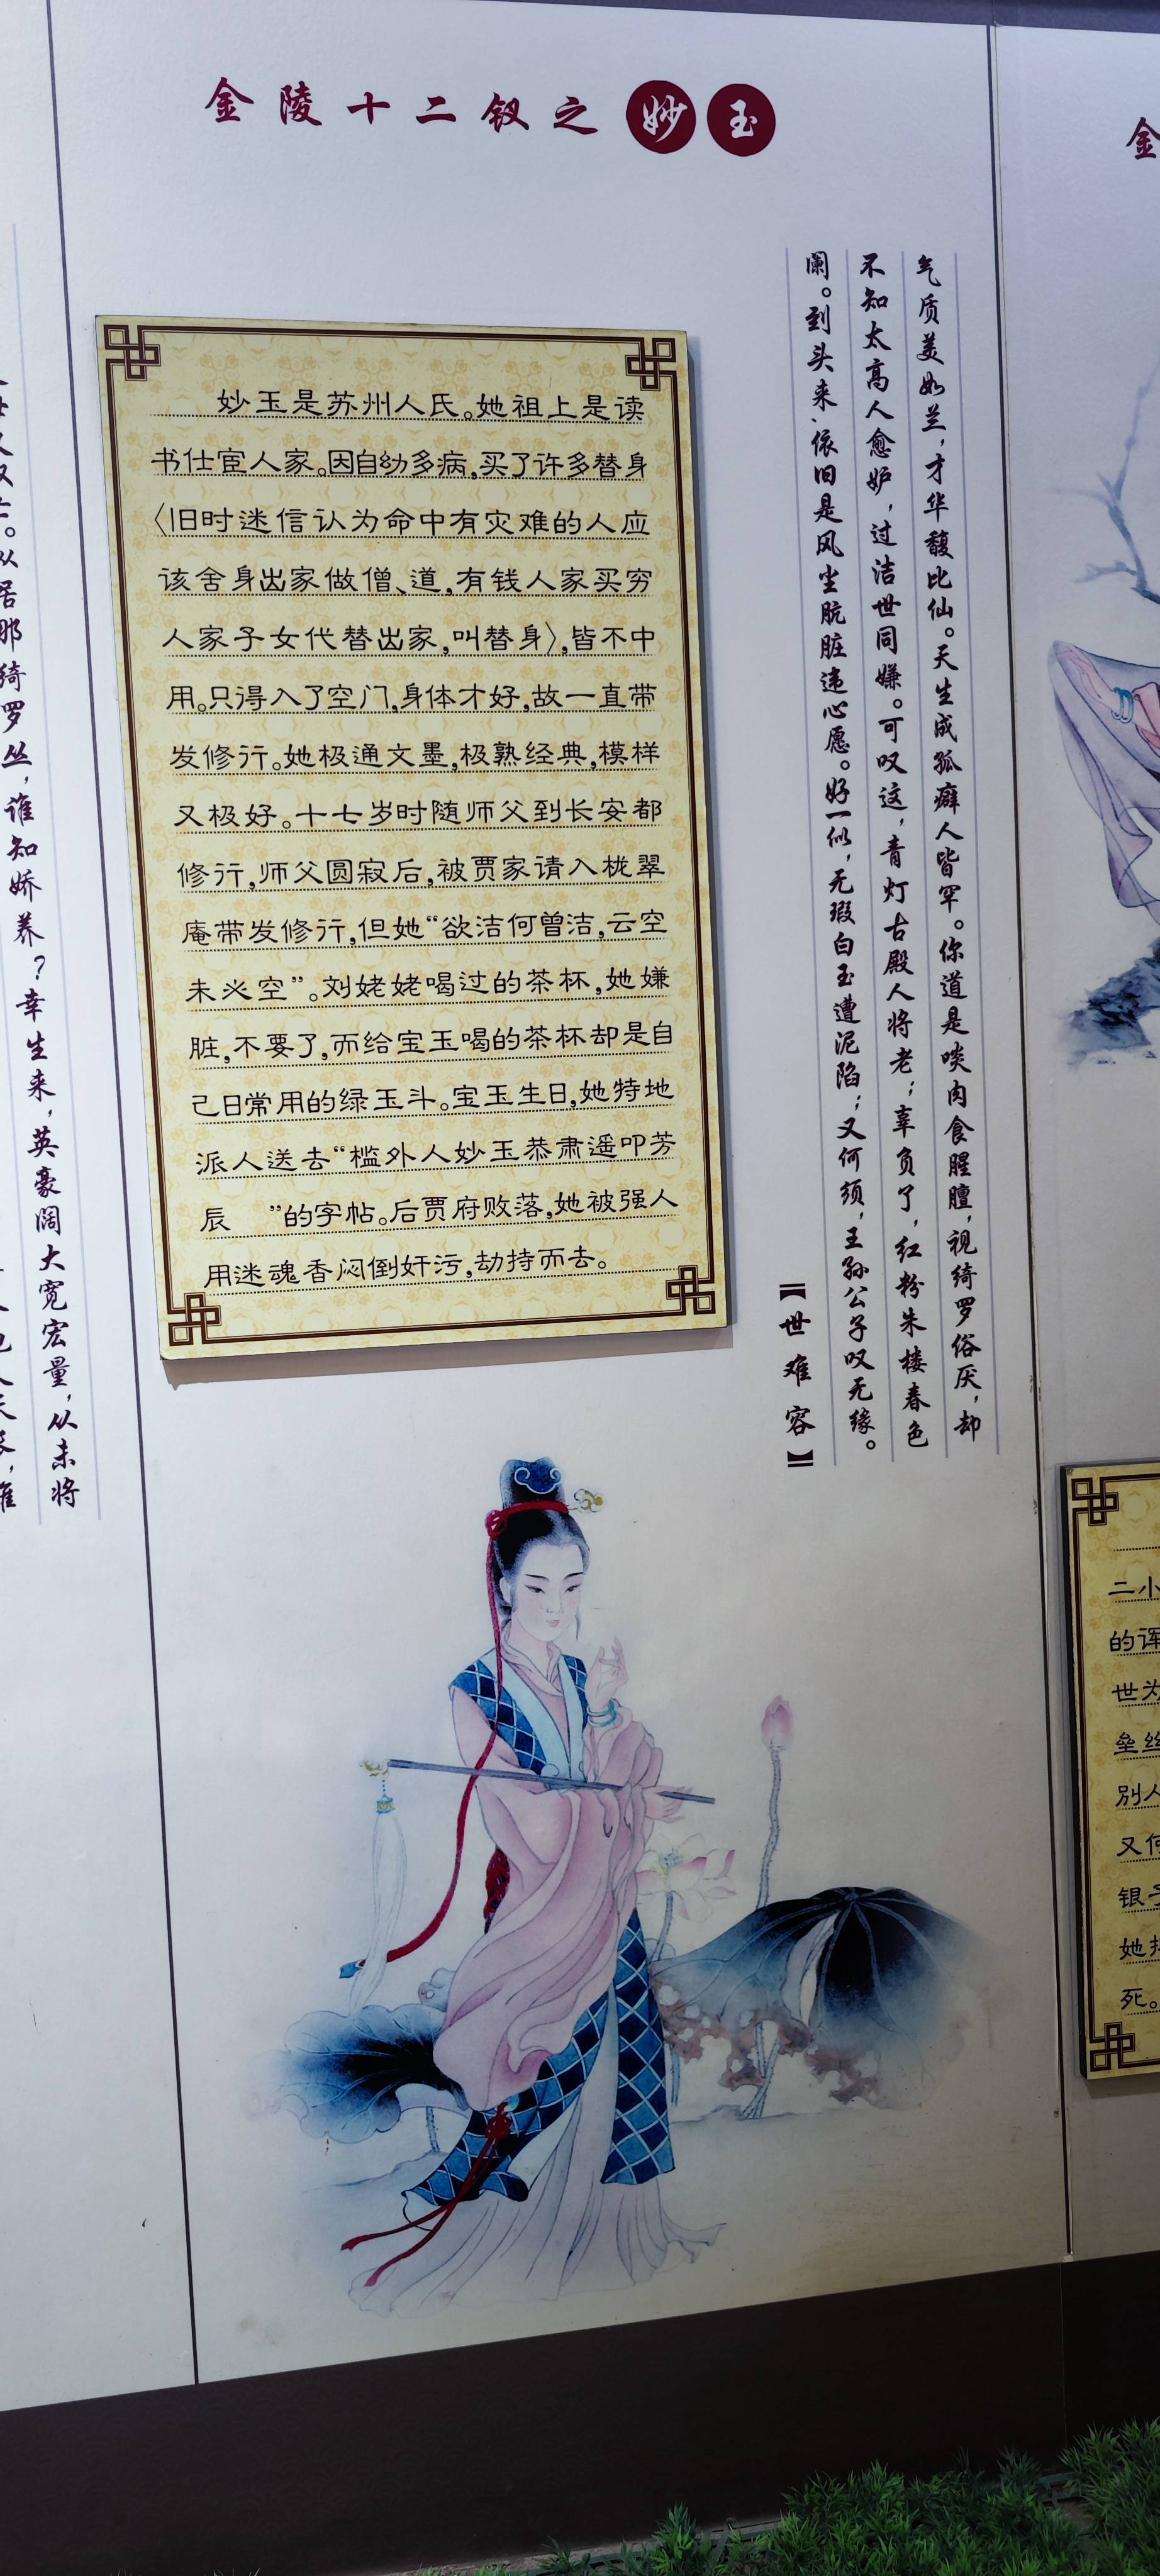 金陵十二钗之妙玉
妙玉是苏州人氏。她祖上是读
书仕宦人家。因自幼多病,买了许多替身
〈旧时迷信认为命中有灾难的人应
该舍身出家做僧、道,有钱人家买穷
人家子女代替出家,叫替身〉,皆不中
用。只得入了空门,身体才好,故一直带
发修行。她极通文墨,极熟经典,模样
又极好。十七岁时随师父到长安都
修行,师父圆寂后,被贾家请入栊翠
庵带发修行,但她“欲洁何曾洁,云空
未必空”。刘姥姥喝过的茶杯,她嫌
脏,不要了,而给宝玉喝的茶杯却是自
己日常用的绿玉斗。宝玉生日,她特地
派人送去“槛外人妙玉恭肃遥叩芳
辰 ”的字帖。后贾府败落,她被强人
用迷魂香闷倒奸污,劫持而去。
气质美如兰，才华馥比仙。天生成孤癖人皆罕。你道是啖肉食腥膻，视绮罗俗厌，却
不知太高人愈妒，过洁世同嫌。可叹这，青灯古殿人将老；辜负了，红粉朱楼春色
阑。到头来、依旧是风尘肮脏违心愿。好一似，无瑕白玉遭泥陷；又何须，王孙公子叹无缘。
【世难容】
那绮罗丛，谁知娇养？幸生来，英豪阔大宽宏量，从未将
金
二小
的诨
世为
垒丝
别人
银子
她
死。